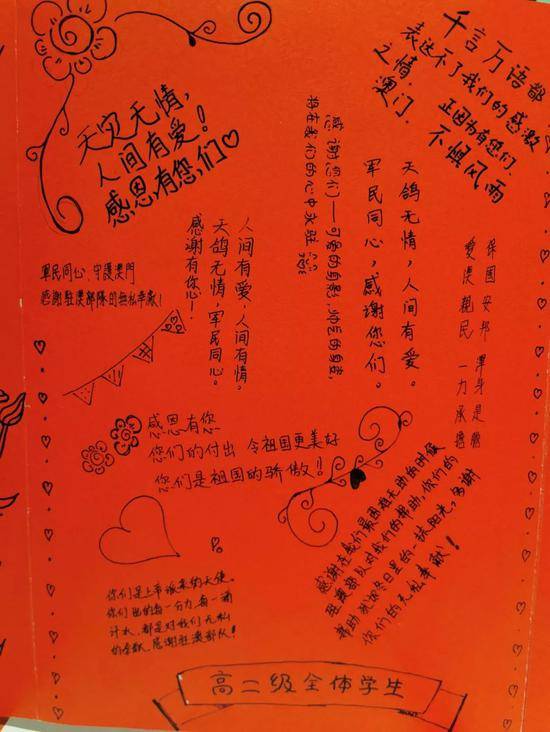 天灾无情,
人间有爱!
感恩有您,们♡
千言万语都
表达不了我们的感激
之情,
正因为有您们,
澳门,
不惧风雨
感谢您们——可爱的
将在我们的心中
天鸽无情,人间有爱。
軍民同心,感谢您们。
人间有爱,人间有情。
天鸽无情,軍民同心。
感谢有您心!
軍民同心、守護澳門
感謝駐澳部隊的無私奉献!
保國安邦 渾身是膽
愛澳親民 一力承擔
感恩有您
您们的付出 令祖国更美好
您们是祖国的骄傲!
感谢在我们最困难无助的时候
驻澳部队对我们的帮助,你们的
帮助就像冬日里的一抹阳光,多谢
你们的无私奉献!
你们是上帝派来的天使。
你们出的每一分力,每一滴
汗水,都是对我们无私
的奉献,感谢驻澳部队!
高二级全体学生